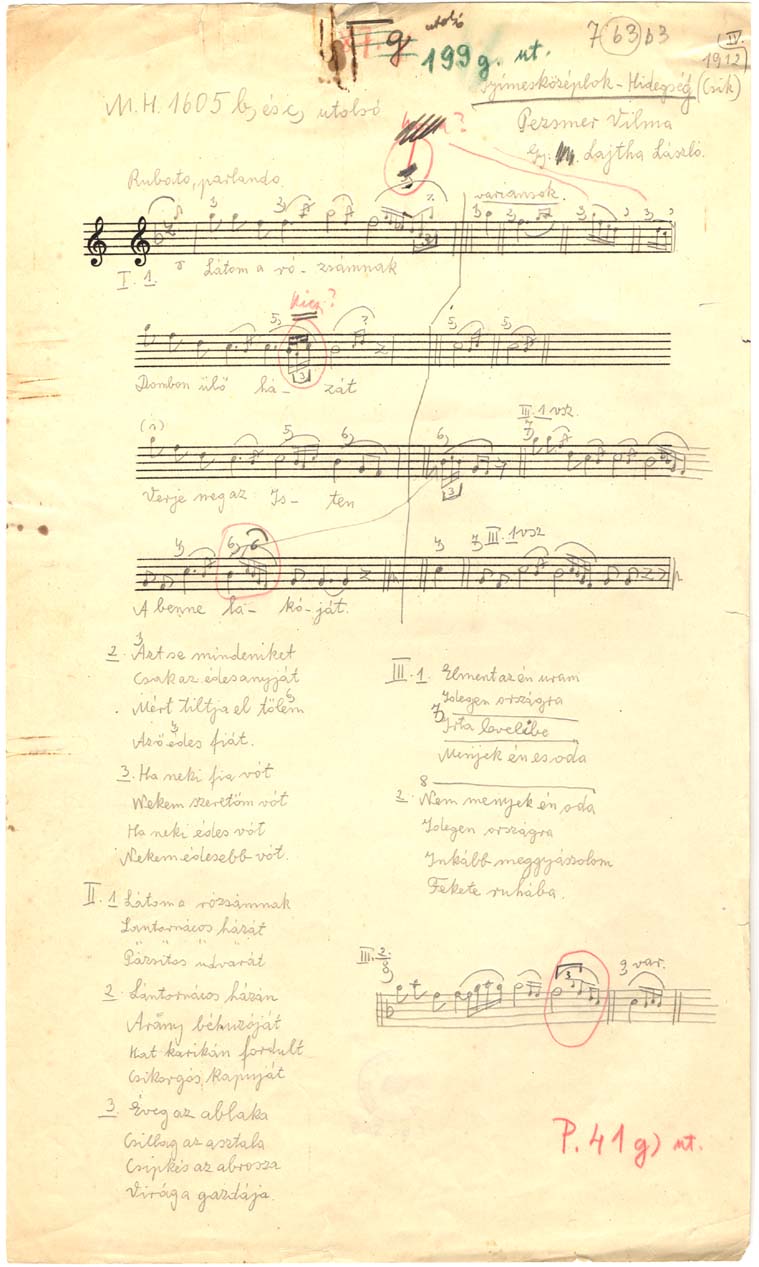 utolsó
g
199 g. ut.
7 63 b3
IV.
1912
Gyimesközéplok - Hidegség (Csík)
M.H. 1605 b, és c, utolsó
Pezsmer Vilma
Gy. Lajtha László.
Rubato, parlando.
variánsok.
I. 1. Látom a ró- zsámnak
kicz?
Dombon ülő há- zát
III. 1 vsz.
Verje meg az Is- ten
III. 1 vsz
A benne la- kó- ját.
2. Azt se mindeniket
Csak az édesanyját
Mért tiltja el tőlem
Az ő édes fiát.
3. Ha neki fia vót
Nekem szeretőm vót
Ha neki édes vót
Nekem édesebb vót.
II. 1 Látom a rózsámnak
Lantornácos házát
Pázsitos údvarát
2 Lántornácos házán
Arany béhuzóját
Hat karikán fordult
Csikorgós kapuját
3. Éveg az ablaka
Csillag az asztala
Csipkés az abrosza
Virága gazdája.
III. 1. Elment az én uram
Idegen országra
7, Irta levelibe
Menjek én es oda
8
2. Nem menyek én oda
Idegen országra
Inkább meggyászolom
Fekete ruhába.
III. 2.
8
var.
P. 41 g) nt.